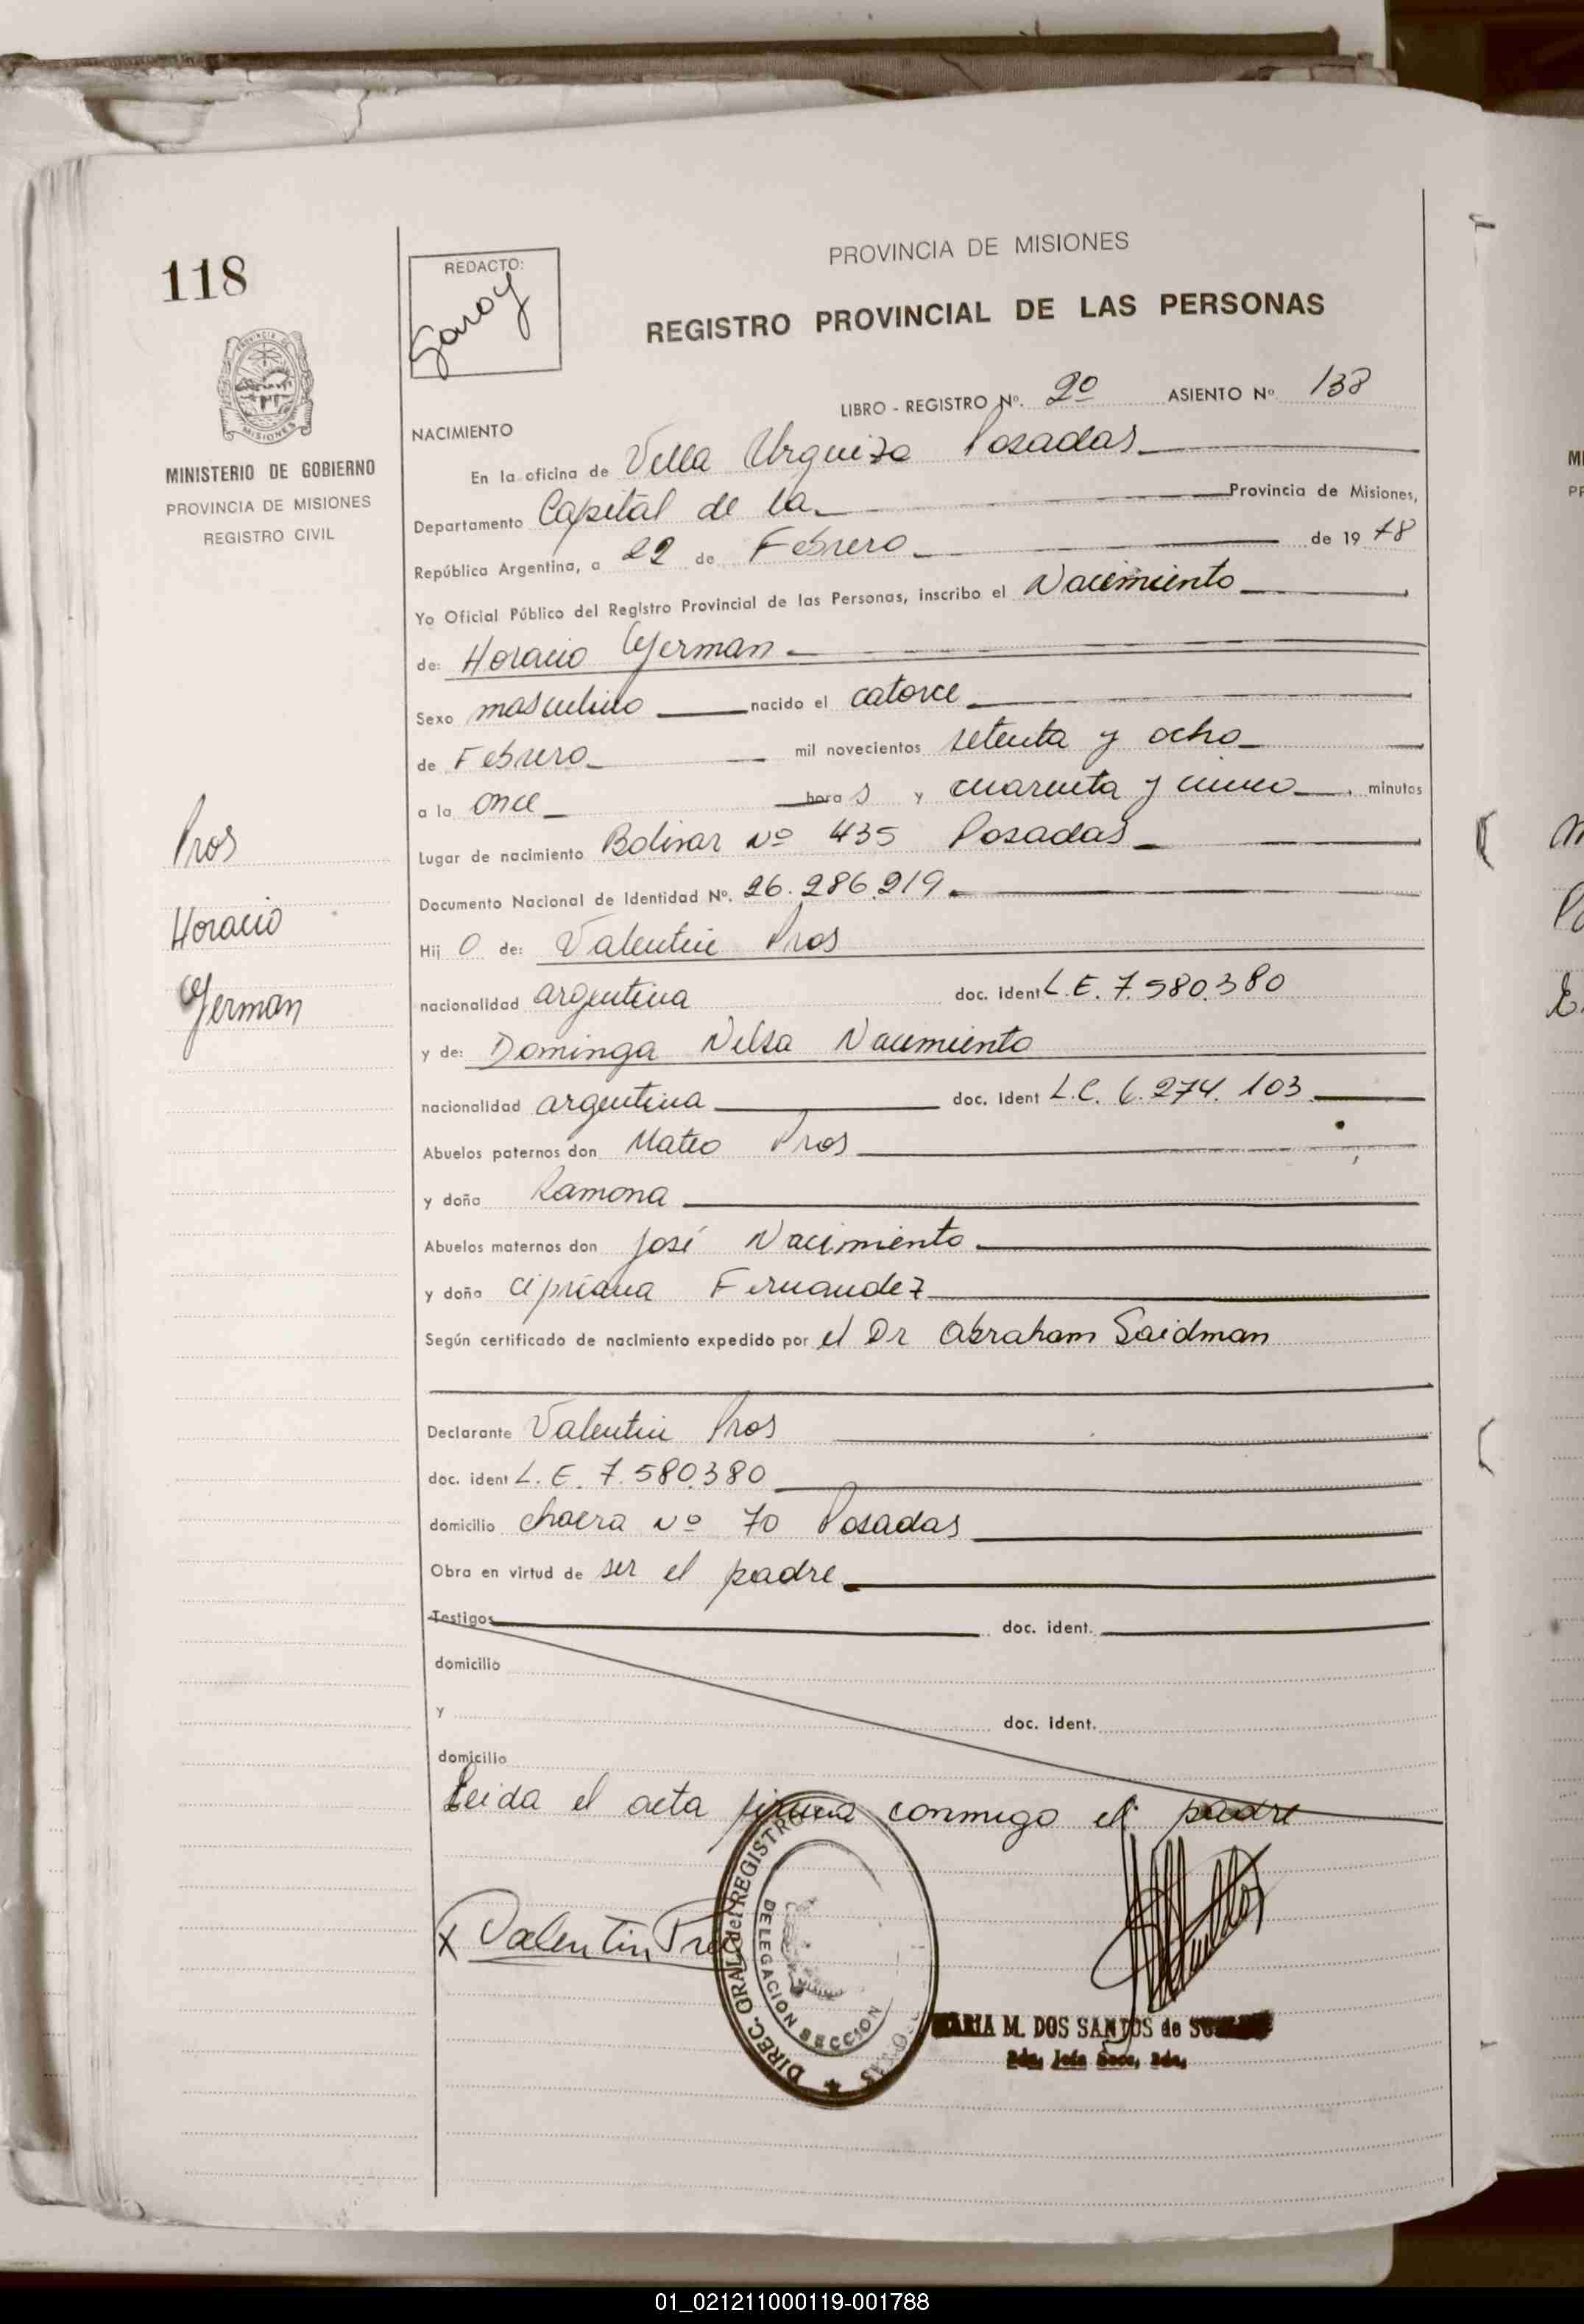 118
REDACTO:
Garoy
PROVINCIA DE MISIONES
REGISTRO PROVINCIAL DE LAS PERSONAS
PROVINCIA DE
MISIONES
MINISTERIO DE GOBIERNO
PROVINCIA DE MISIONES
REGISTRO CIVIL
LIBRO - REGISTRO Nº. 2º ASIENTO Nº 138
NACIMIENTO
En la oficina de Villa Urquiza Posadas
Departamento Capital de la Provincia de Misiones,
República Argentina, a 22 de Febrero de 1978
Yo Oficial Público del Registro Provincial de las Personas, inscribo el Nacimiento
de: Horacio German
Sexo masculino nacido el catorce
de Febrero mil novecientos setenta y ocho
a la once hora s y cuarenta y cinco, minutos
Lugar de nacimiento Bolivar Nº 435 Posadas
Documento Nacional de Identidad Nº. 26.286.219
Hij o de: Valentin Pros
nacionalidad argentina doc. ident L.E. 7.580.380
y de: Dominga Nilsa Nacimiento
nacionalidad argentina doc. ident L.C. 6.274.103
Abuelos paternos don Mateo Pros
y doña Ramona
Abuelos maternos don José Nacimiento
y doña Cipriana Fernandez
Según certificado de nacimiento expedido por el Dr Abraham Saidman
Declarante Valentin Pros
doc. ident L.E. 7.580.380
domicilio chacra Nº 70 Posadas
Obra en virtud de ser el padre
Testigos doc. ident.
domicilio
y doc. ident.
domicilio
Leida el acta firma conmigo el padre
Pros
Horacio
German
X Valentin Pros
DIREC. GRAL. del REGISTRO
DELEGACION SECCION
MARIA M. DOS SANTOS de
01_021211000119-001788